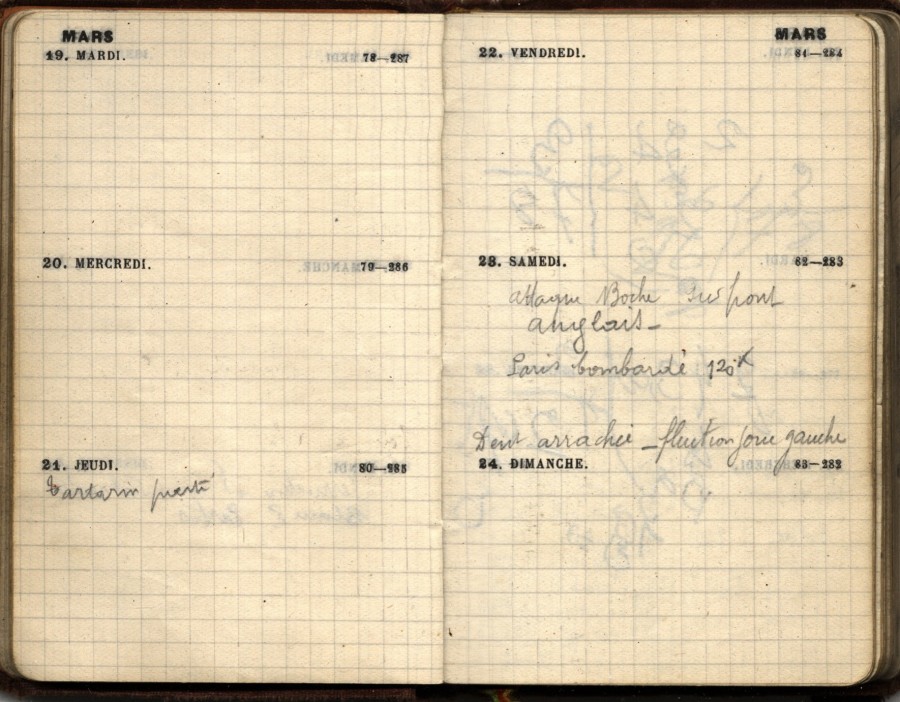 MARS
19. MARDI. 78—287
20. MERCREDI. 79—286
21. JEUDI. 80—285
Tartarin parti
MARS
22. VENDREDI. 81—284
23. SAMEDI. 82—283
attaque Boche sur front
anglais—
Paris bombardé 120
Dent arrachée — fluction joue gauche
24. DIMANCHE. 83—282